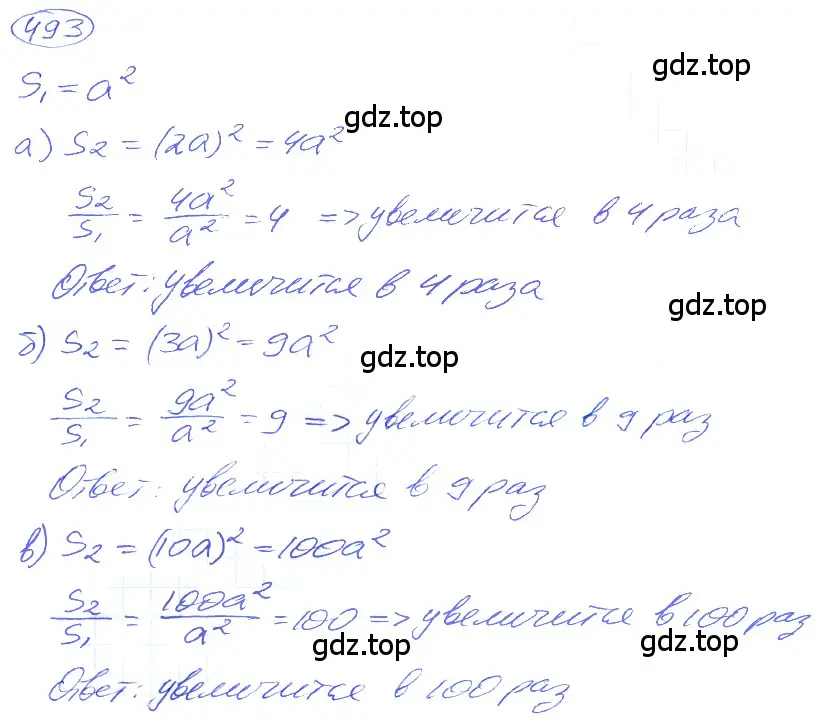 493
gdz.top
S₁ = a²
gdz.top
а) S₂ = (2a)² = 4a²
S₂/S₁ = 4a²/a² = 4 => увеличится в 4 раза
Ответ: увеличится в 4 раза
gdz.top
б) S₂ = (3a)² = 9a²
gdz.top
S₂/S₁ = 9a²/a² = 9 => увеличится в 9 раз
Ответ: увеличится в 9 раз
в) S₂ = (10a)² = 100a²
S₂/S₁ = 100a²/a² = 100 => увеличится в 100 раз
gdz.top gdz.top
Ответ: увеличится в 100 раз